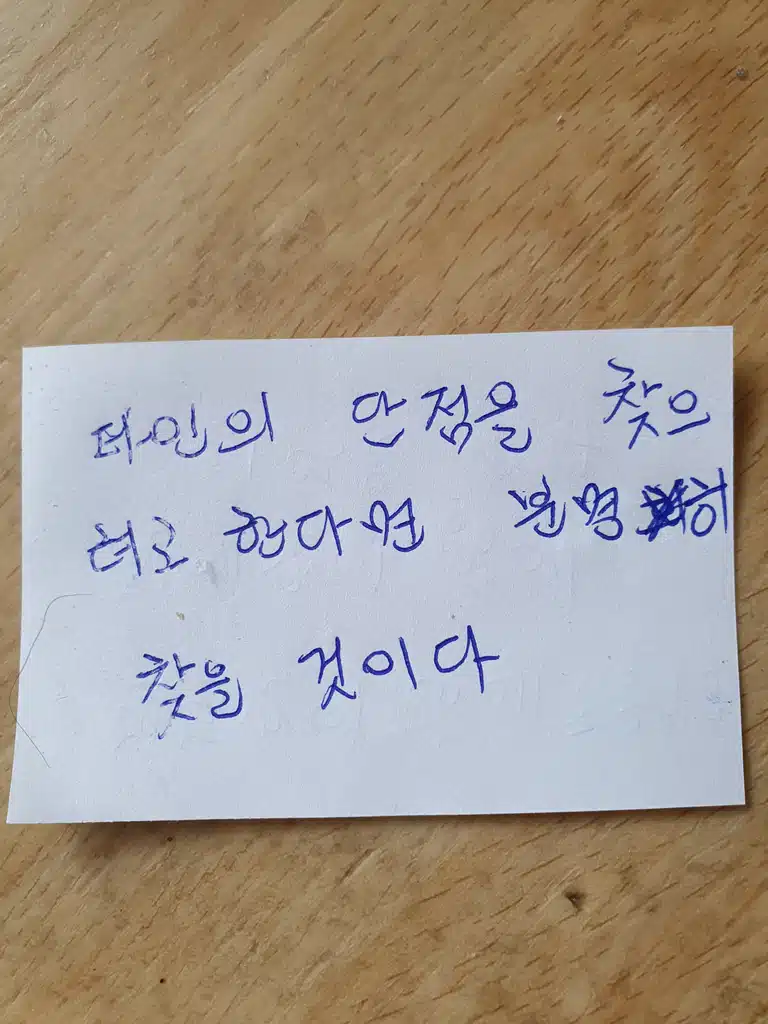 타인의 단점을 찾으
려고 한다면 분명히
찾을 것이다